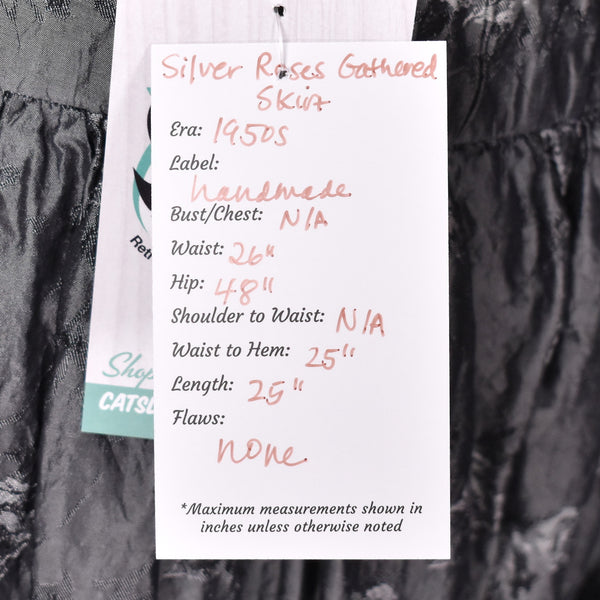 Silver Roses Gathered
Skirt
Era: 1950s
Label:
handmade
Bust/Chest: N/A
Waist: 26"
Hip: 48"
Shoulder to Waist: N/A
Waist to Hem: 25"
Length: 25"
Flaws:
none
*Maximum measurements shown in
inches unless otherwise noted
Retr
Shop
CATSL